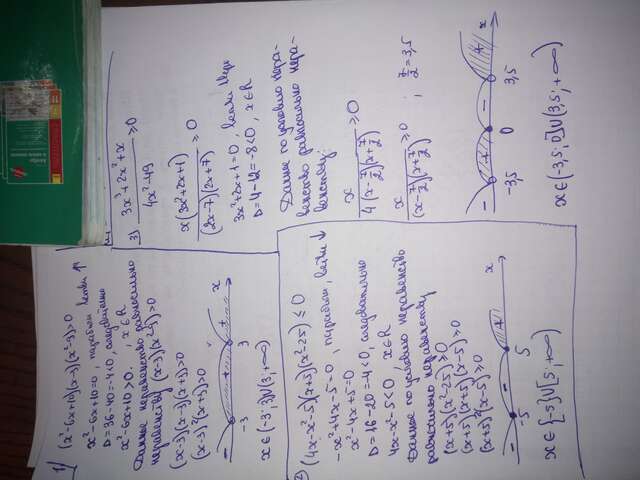 1) (x²-6x+10)(x-3)(x²-9)>0
x²-6x+10=0, парабола ветви ↑
D=36-40=-4<0, следовательно
x²-6x+10>0, x∈R
Данное неравенство равносильно
неравенству (x-3)(x²-9)>0
(x-3)(x-3)(x+3)>0
(x-3)²(x+3)>0
- + + x
-3 3
x∈(-3;3)∪(3;+∞)
2) (4x-x²-5)(x+5)(x²-25)≤0
-x²+4x-5=0, парабола, ветви ↓
x²-4x+5=0
D=16-20=-4<0, следовательно
4x-x²-5<0, x∈R
Данное по условию неравенство
равносильно неравенству
(x+5)(x²-25)≥0
(x+5)(x+5)(x-5)≥0
(x+5)²(x-5)≥0
- - + x
-5 5
x∈{-5}∪[5;+∞)
3) (3x³+2x²+x)/(4x²-49) ≥0
x(3x²+2x+1)/((2x-7)(2x+7)) ≥0
3x²+2x+1=0, ветви вверх
D=4-12=-8<0, x∈R
Данное по условию нера-
венство равносильно нера-
венству:
x/(4(x-7/2)(x+7/2)) ≥0
x/((x-7/2)(x+7/2)) ≥0 ; 7/2=3,5
- + - + x
-3,5 0 3,5
x∈(-3,5;0]∪(3,5;+∞)